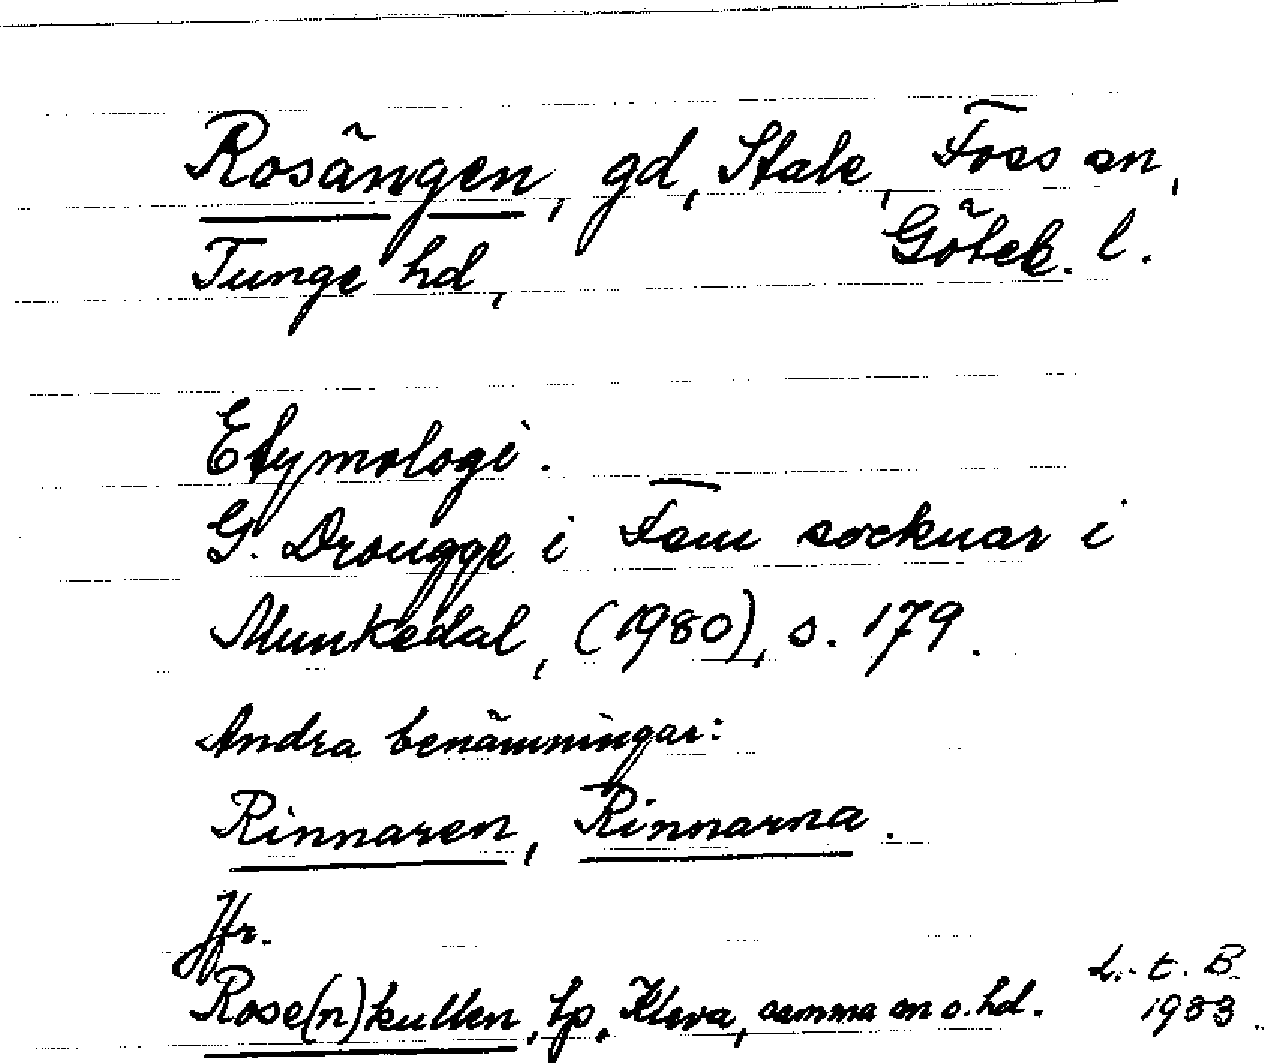 Rosängen, gd, Stale, Foss sn,
Tunge hd, Göteb. l.
Etymologi.
G. Drougge i Fem socknar i
Munkedal, (1980), s. 179.
Andra benämningar:
Rinnaren, Rinnarna.
Jfr.
Rose(n)kullen, tp, Kleva, samma sn o. hd.
L. t. B.
1983.